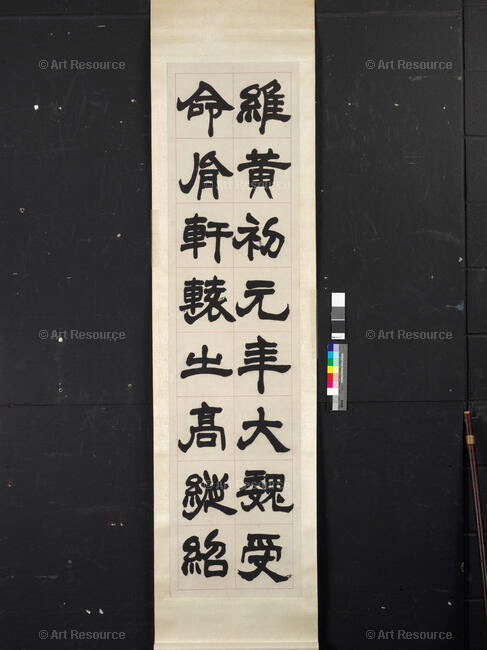 維黃初元年大魏受
命胤軒轅之高縱紹
© Art Resource
© Art Resource
© Art Resource
© Art Resource
© Art Resource
© Art Resource